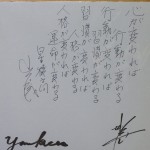 心が変われば
行動が変わる
行動が変われば
習慣が変わる
習慣が変われば
人格が変わる
人格が変われば
運命が変わる
Yankees